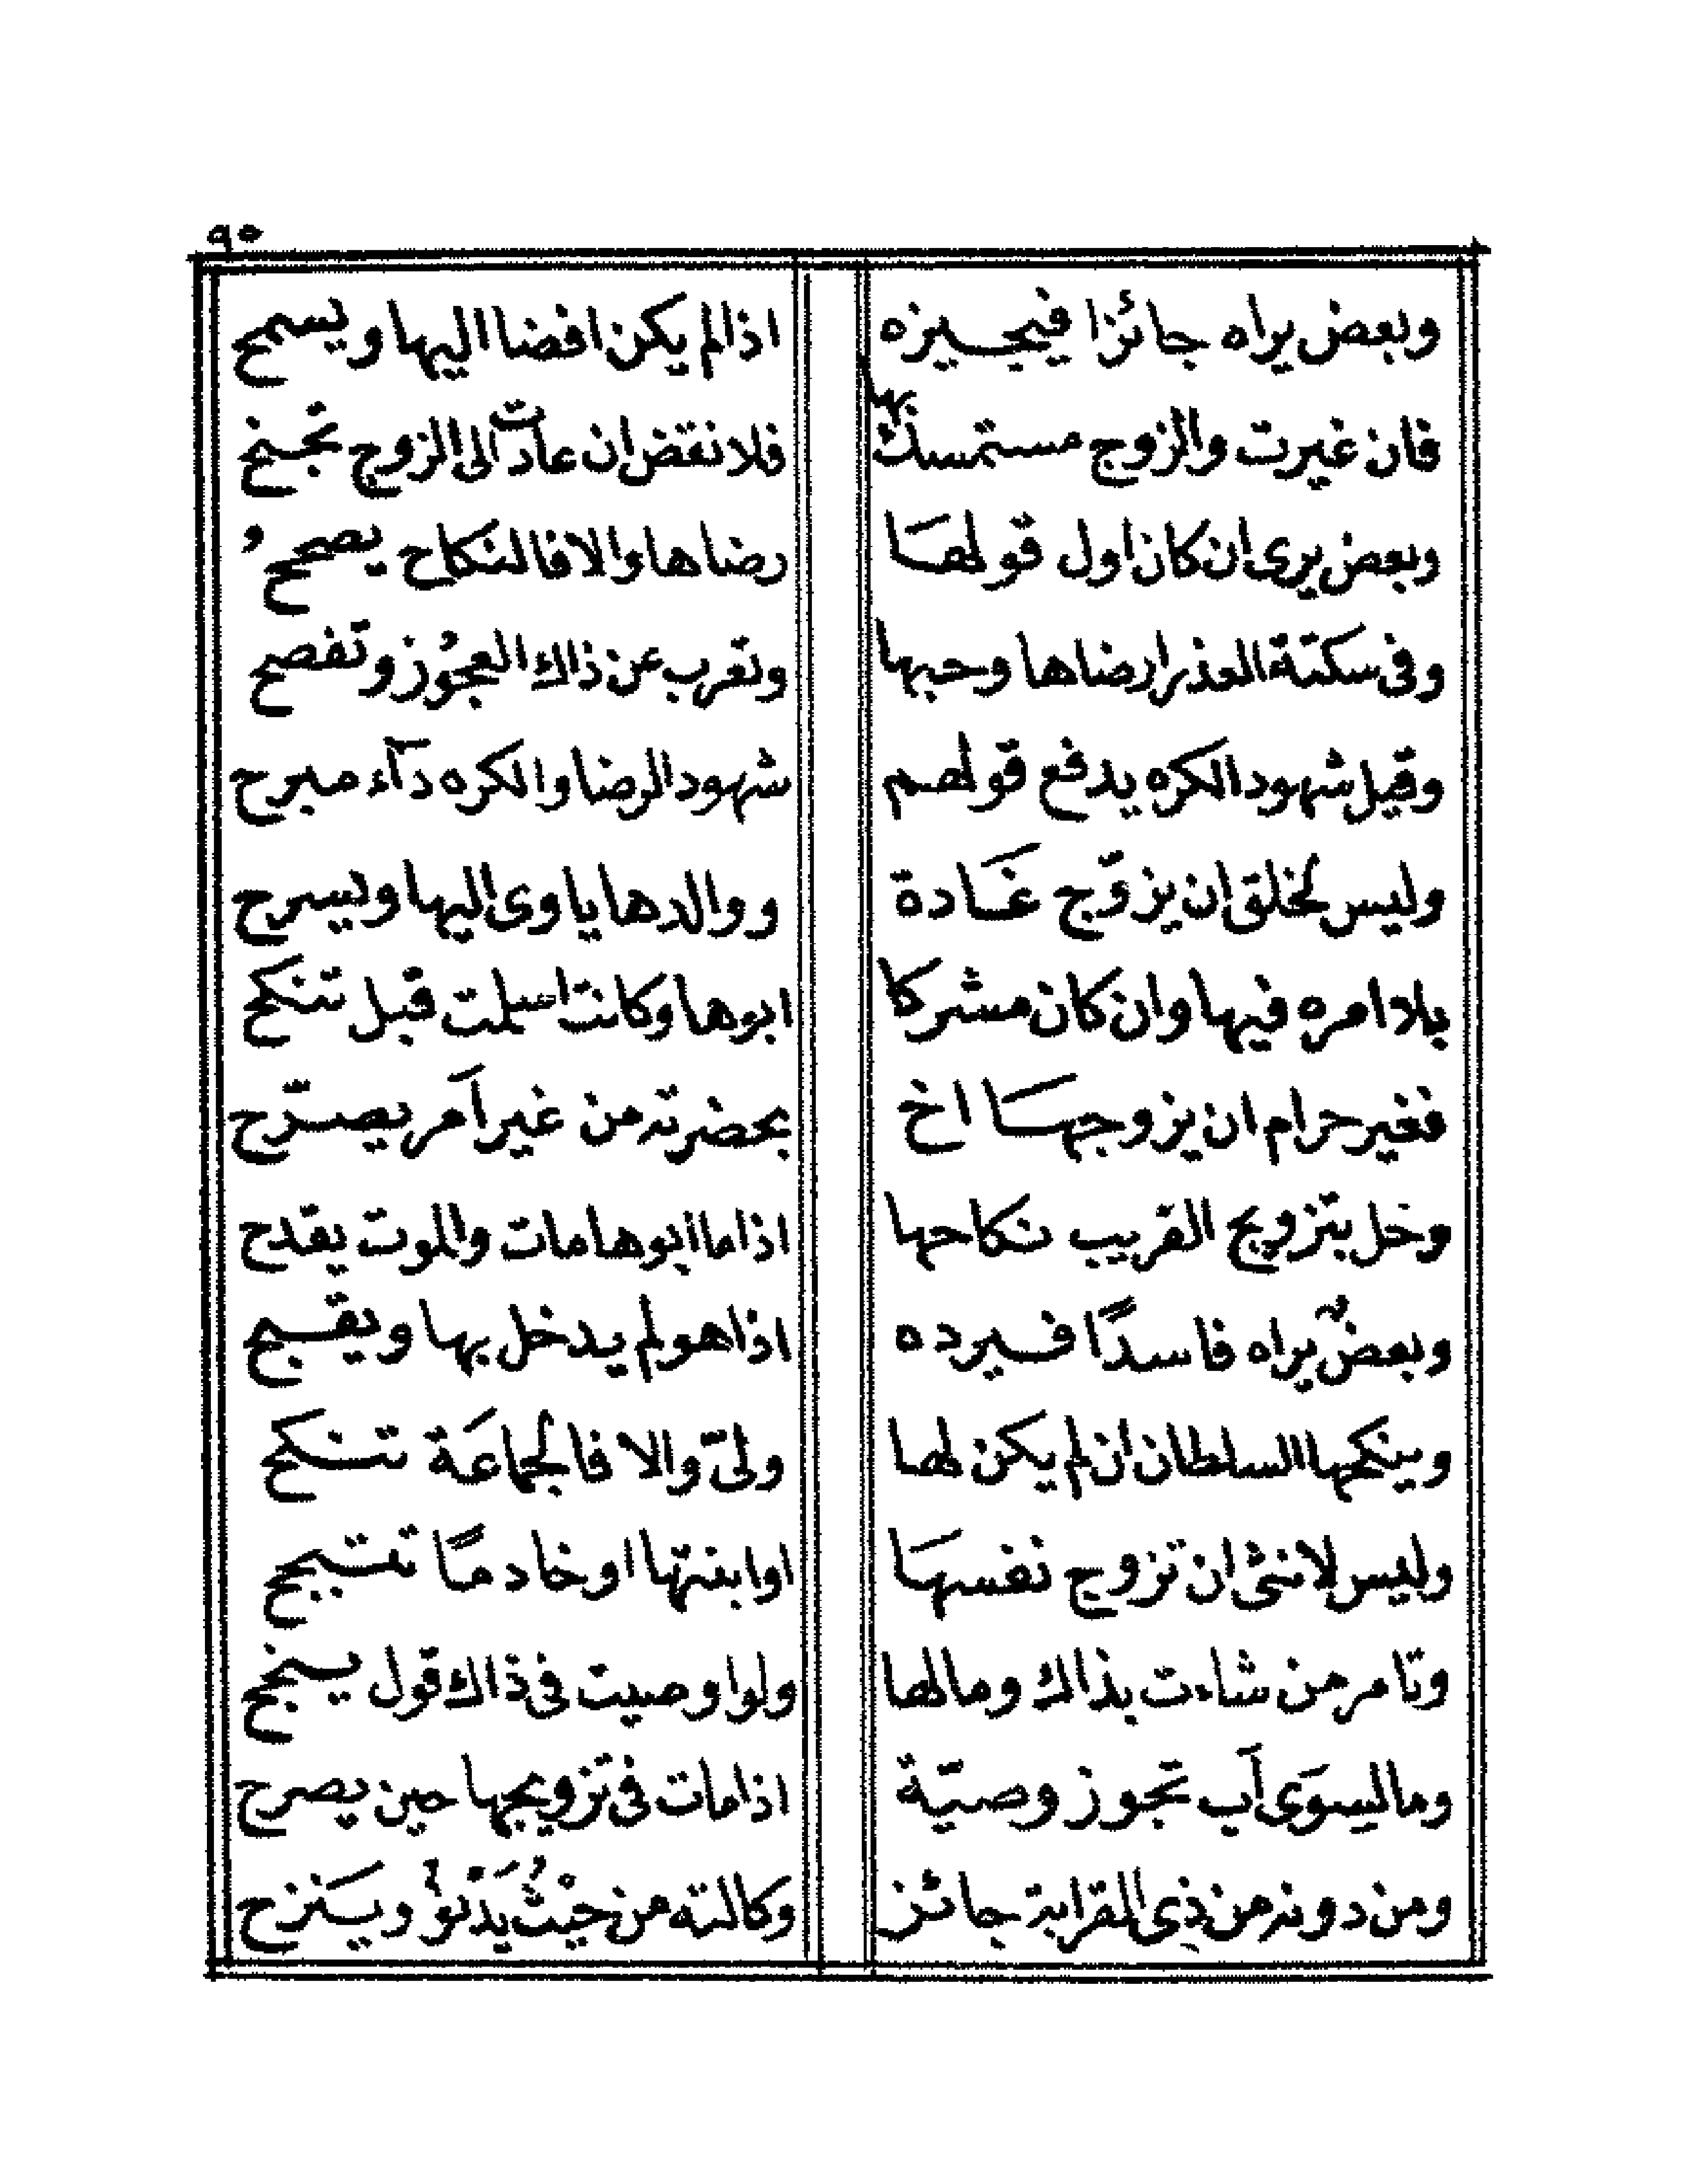 ٩٥
وبعض يراه جائزا فيجيزه اذا لم يكن افضا اليها ويسمح
فان غيرت والزوج مستمسك بها فلا نقض ان عادت الى الزوج تجنح
وبعض يرى ان كان اول قولها رضاها والا فالنكاح يصحح و
وفى سكتة العذرا رضاها وحبها وتعرب عن ذاك العجُوز وتفصح
وقيل شهود الكره يدفع قولهم شهود الرضا والكره دآء مبرح
وليس لخلق ان يزوّج غَادة ووالدها ياوى اليها ويسرح
بلا امره فيها وان كان مشركا ابوها وكانت اسلمت قبل تنكح
فغير حرام ان يزوجهَا اخ بحضرته من غير اَمر يصرّح
وخل بتزويج القريب نكاحها اذا ما ابوها مات والموت يقدح
وبعضٌ يراه فاسدًا فيرده اذا هو لم يدخل بها ويقبح
وينكحها السلطان ان لم يكن لها ولىّ والا فالجماعَة تنكح
وليس لانثى ان تزوج نفسهَا او ابنتها او خادمًا تتبجح
وتامر من شاءت بذاك ومالها ولو اوصيت فى ذاك قول ينجح
وما لسِوَى اَب تجوز وصيّة اذا مات فى تزويجها حين يصرح
ومن دونه من ذِى القرابة جائز وكالته من حيْثُ يَدْنوْ ويَنزح